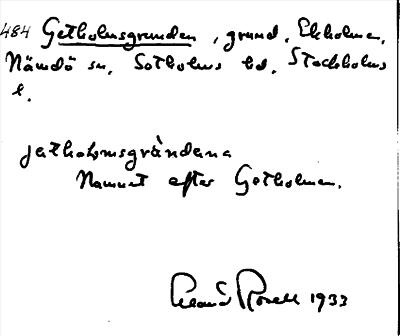 484 Getholmsgrunden, grund, Ekholmen,
Nämdö sn, Sotholms hd, Stockholms
l.
jethohmsgrándena
Namnet efter Getholmen.
Rosell 1933